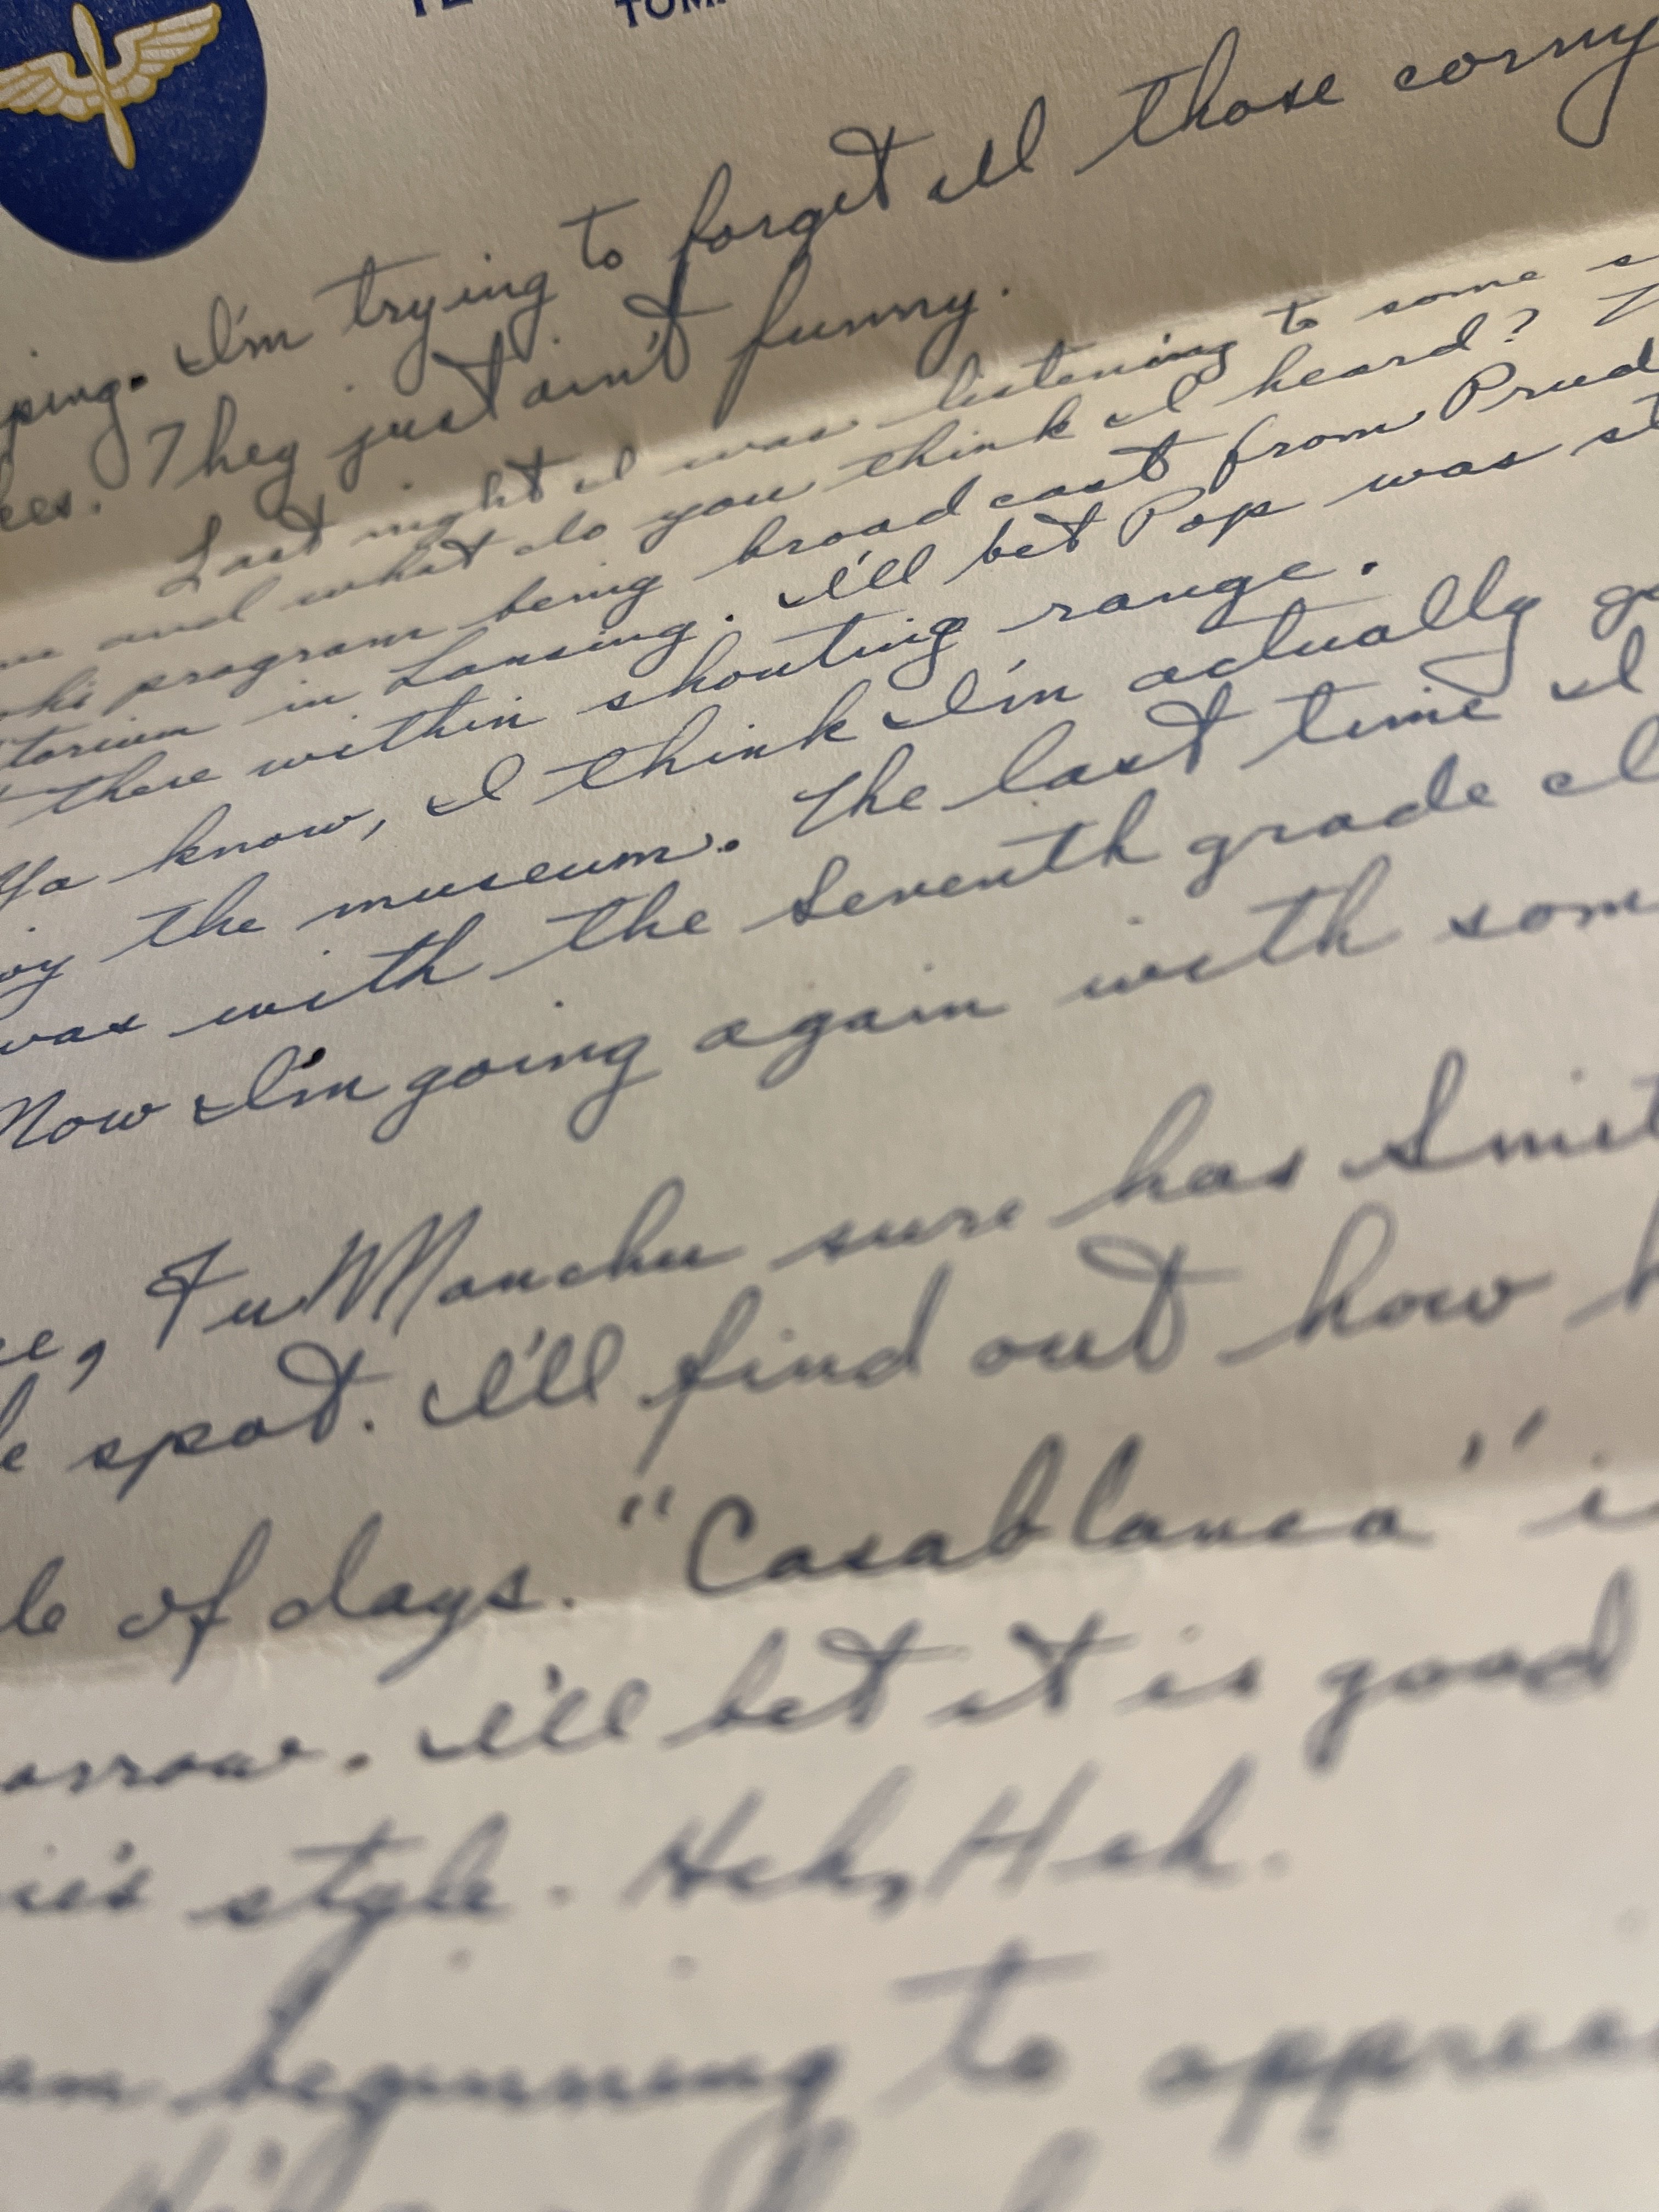 TE
TOM
ping. I'm trying to forget all those corny
kes. They just ain't funny.
Last night I was listening to some s
me and what do you think I heard?
program being broadcast from Prud
torium in Lansing. I'll bet Pop was st
there within shouting range.
Ya know, I think I'm actually go
oy the museum. The last time I
was with the seventh grade cl
Now I'm going again with som
ee, Fu Manchu sure has Smit
e spot. I'll find out how h
le of days. "Casablanca" is
orrow. I'll bet it is good
ie's style. Heh, Heh.
am beginning to apprec